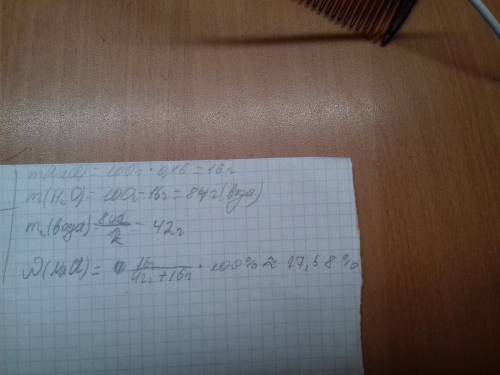 m(NaCl) = 100г · 0,16 = 16г
m(H₂O) = 100г - 16г = 84г (вода)
m₂(вода) 84г/2 = 42г
ω(NaCl) = 16г/42г+16г · 100% ≈ 27,58%